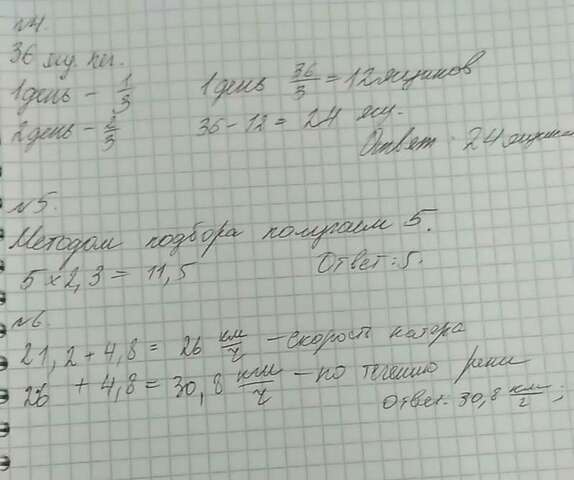 №4.
36 ящ. пег.
1 день - 1/3 1 день 36/3 = 12 ящиков
2 день - 2/3 36 - 12 = 24 ящ.
Ответ: 24 ящика
№5.
Методом подбора получаем 5.
5 × 2,3 = 11,5 Ответ: 5.
№6.
21,2 + 4,8 = 26 км/ч - скорость катера
26 + 4,8 = 30,8 км/ч - по течению реки
Ответ: 30,8 км/ч;